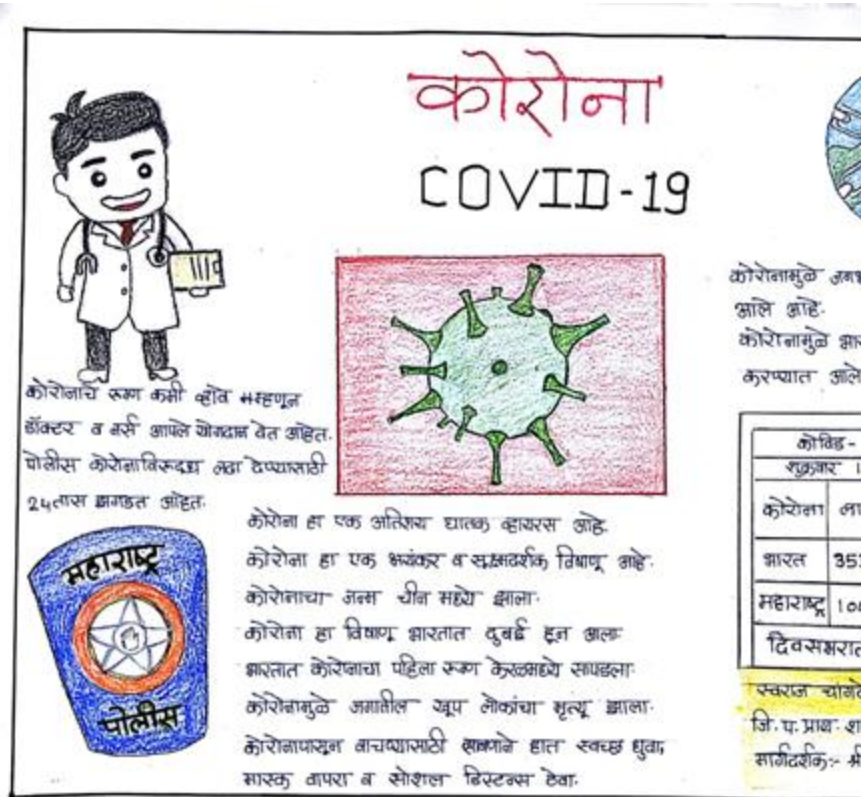 कोरोना
COVID-19
कोरोनाचे रूग्ण कमी व्हावे म्हणून
डॉक्टर व नर्स आपले योगदान देत आहेत.
पोलीस कोरोनाविरूद्ध लढा देण्यासाठी
24तास झगडत आहेत.
महाराष्ट्र
पोलीस
कोरोना हा एक अतिशय घातक व्हायरस आहे.
कोरोना हा एक भयंकर व सूक्ष्मदर्शक विषाणू आहे.
कोरोनाचा जन्म चीन मध्ये झाला.
कोरोना हा विषाणू भारतात दुबई हून आला.
भारतात कोरोनाचा पहिला रूग्ण केरळमध्ये सापडला.
कोरोनामुळे जगातील खूप लोकांचा मृत्यू झाला.
कोरोनापासून वाचण्यासाठी साबणाने हात स्वच्छ धुवा,
मास्क वापरा व सोशल डिस्टन्स ठेवा.
कोरोनामुळे
आले आहे.
कोरोनामुळे
करण्यात आले
कोविड -
शुक्रवार 1
कोरोना
भारत 35
महाराष्ट्र 10
दिवसभरात
स्वराज
जि. प. प्राथ. शा
मार्गदर्शक:- श्री